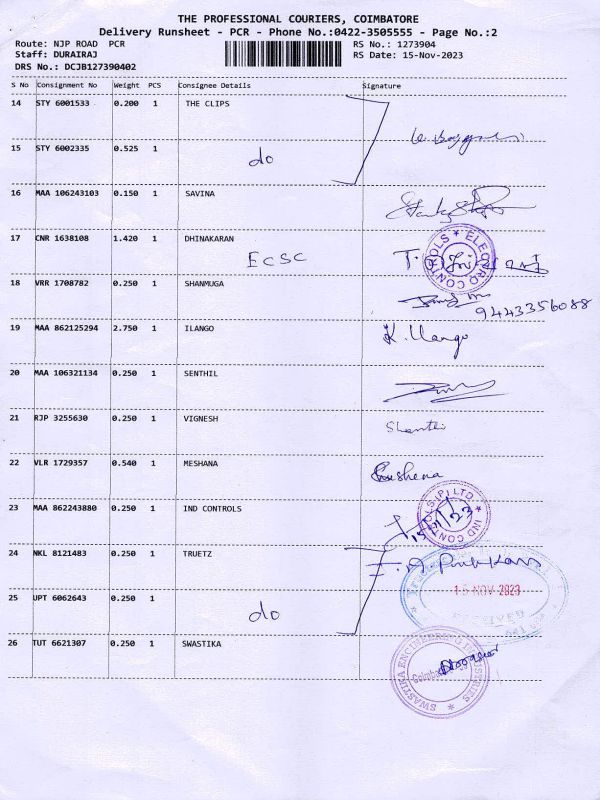 THE PROFESSIONAL COURIERS, COIMBATORE
Delivery Runsheet - PCR - Phone No.:0422-3505555 - Page No.:2
Route: NJP ROAD PCR RS No.: 1273904
Staff: DURAIRAJ RS Date: 15-Nov-2023
DRS No.: DCJB127390402
S No Consignment No Weight PCS Consignee Details Signature
14 STY 6001533 0.200 1 THE CLIPS
15 STY 6002335 0.525 1 do
16 MAA 106243103 0.150 1 SAVINA
17 CNR 1638108 1.420 1 DHINAKARAN
ECSC
ELECTRO CONTROLS
18 VRR 1708782 0.250 1 SHANMUGA
9443356088
19 MAA 862125294 2.750 1 ILANGO K. Ilango
20 MAA 106321134 0.250 1 SENTHIL
21 RJP 3255630 0.250 1 VIGNESH Shanthi
22 VLR 1729357 0.540 1 MESHANA
23 MAA 862243880 0.250 1 IND CONTROLS
IND CONTROLS (P) LTD
24 NKL 8121483 0.250 1 TRUETZ
15 NOV 2023
25 UPT 6062643 0.250 1 do
RECEIVED
26 TUT 6621307 0.250 1 SWASTIKA
SWASTIKA ENGINEERING INDUSTRIES